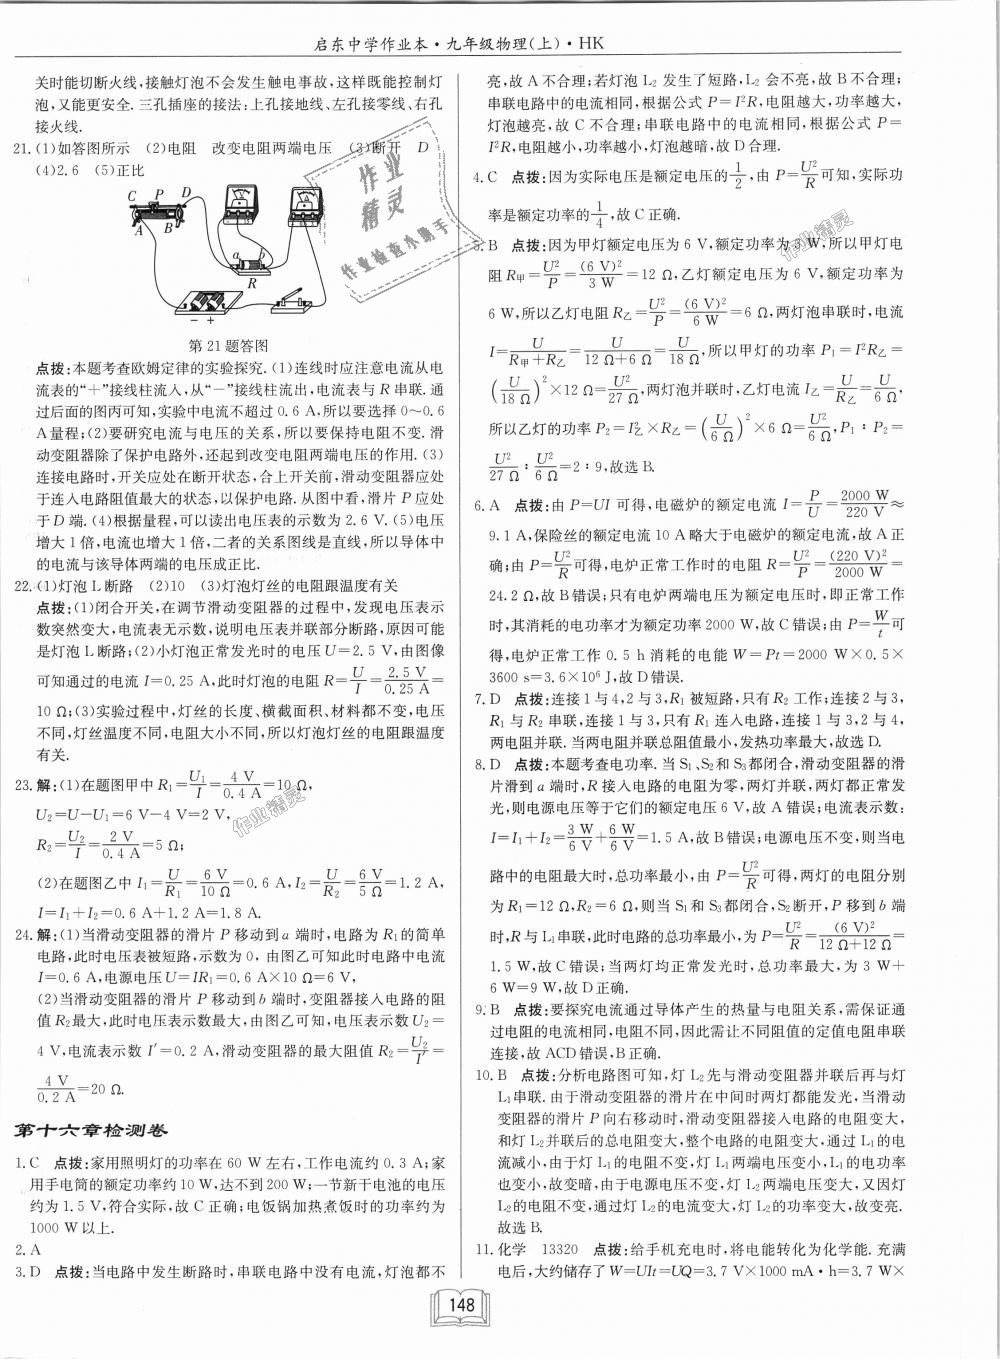 启东中学作业本·九年级物理(上)·HK
关时能切断火线,接触灯泡不会发生触电事故,这样既能控制灯
泡,又能更安全. 三孔插座的接法:上孔接地线、左孔接零线、右孔
接火线.
21. (1)如答图所示 (2)电阻 改变电阻两端电压 (3)断开 D
(4)2.6 (5)正比
C P D
A B
a b
R
− +
第 21 题答图
点拨:本题考查欧姆定律的实验探究. (1)连线时应注意电流从电
流表的“+”接线柱流入,从“−”接线柱流出,电流表与 R 串联. 通
过后面的图丙可知,实验中电流不超过 0.6 A,所以要选择 0~0.6
A 量程;(2)要研究电流与电压的关系,所以要保持电阻不变. 滑
动变阻器除了保护电路外,还起到改变电阻两端电压的作用. (3)
连接电路时,开关应处在断开状态,合上开关前,滑动变阻器应处
于连入电路阻值最大的状态,以保护电路. 从图中看,滑片 P 应处
于 D 端. (4)根据量程,可以读出电压表的示数为 2.6 V. (5)电压
增大 1 倍,电流也增大 1 倍,二者的关系图线是直线,所以导体中
的电流与该导体两端的电压成正比.
22. (1)灯泡 L 断路 (2)10 (3)灯泡灯丝的电阻跟温度有关
点拨:(1)闭合开关,在调节滑动变阻器的过程中,发现电压表示
数突然变大,电流表无示数,说明电压表并联部分断路,原因可能
是灯泡 L 断路;(2)小灯泡正常发光时的电压 U=2.5 V,由图像
可知通过的电流 I=0.25 A,此时灯泡的电阻 R=U/I=2.5 V/0.25 A=
10 Ω;(3)实验过程中,灯丝的长度、横截面积、材料都不变,电压
不同,灯丝温度不同,电阻大小不同,所以灯泡灯丝的电阻跟温度
有关.
23. 解:(1)在题图甲中 R₁=U₁/I=4 V/0.4 A=10 Ω,
U₂=U−U₁=6 V−4 V=2 V,
R₂=U₂/I=2 V/0.4 A=5 Ω;
(2)在题图乙中 I₁=U/R₁=6 V/10 Ω=0.6 A,I₂=U/R₂=6 V/5 Ω=1.2 A,
I=I₁+I₂=0.6 A+1.2 A=1.8 A.
24. 解:(1)当滑动变阻器的滑片 P 移动到 a 端时,电路为 R₁的简单
电路,此时电压表被短路,示数为 0,由图乙可知此时电路中电流
I=0.6 A,电源电压 U=IR₁=0.6 A×10 Ω=6 V,
(2)当滑动变阻器的滑片 P 移动到 b 端时,变阻器接入电路的阻
值 R₂最大,此时电压表示数最大,由图乙可知,电压表示数 U₂=
4 V,电流表示数 I′=0.2 A,滑动变阻器的最大阻值 R₂=U₂/I′=
4 V/0.2 A=20 Ω.
第十六章检测卷
1. C 点拨:家用照明灯的功率在 60 W 左右,工作电流约 0.3 A;家
用手电筒的额定功率约 10 W,达不到 200 W;一节新干电池的电压
约为 1.5 V,符合实际,故 C 正确;电饭锅加热煮饭时的功率约为
1000 W 以上.
2. A
3. D 点拨:当电路中发生断路时,串联电路中没有电流,灯泡都不
亮,故 A 不合理;若灯泡 L₂ 发生了短路,L₂ 会不亮,故 B 不合理;
串联电路中的电流相同,根据公式 P=I²R,电阻越大,功率越大,
灯泡越亮,故 C 不合理;串联电路中的电流相同,根据公式 P=
I²R,电阻越小,功率越小,灯泡越暗,故 D 合理.
4. C 点拨:因为实际电压是额定电压的1/2,由 P=U²/R可知,实际功
率是额定功率的1/4,故 C 正确.
5. B 点拨:因为甲灯额定电压为 6 V,额定功率为 3 W,所以甲灯电
阻 R甲=U²/P=(6 V)²/3 W=12 Ω,乙灯额定电压为 6 V,额定功率为
6 W,所以乙灯电阻 R乙=U²/P=(6 V)²/6 W=6 Ω,两灯泡串联时,电流
I=U/(R甲+R乙)=U/(12 Ω+6 Ω)=U/18 Ω,所以甲灯的功率 P₁=I²R乙=
(U/18 Ω)²×12 Ω=U²/27 Ω,两灯泡并联时,乙灯电流 I乙=U/R乙=U/6 Ω,
所以乙灯的功率 P₂=I乙²×R乙=(U/6 Ω)²×6 Ω=U²/6 Ω,P₁:P₂=
U²/27 Ω:U²/6 Ω=2:9,故选 B.
6. A 点拨:由 P=UI 可得,电磁炉的额定电流 I=P/U=2000 W/220 V≈
9.1 A,保险丝的额定电流 10 A 略大于电磁炉的额定电流,故 A 正
确;由 P=U²/R可得,电炉正常工作时的电阻 R=U²/P=(220 V)²/2000 W=
24.2 Ω,故 B 错误;只有电炉两端电压为额定电压时,即正常工作
时,其消耗的电功率才为额定功率 2000 W,故 C 错误;由 P=W/t可
得,电炉正常工作 0.5 h 消耗的电能 W=Pt=2000 W×0.5×
3600 s=3.6×10⁶ J,故 D 错误.
7. D 点拨:连接 1 与 4,2 与 3,R₁ 被短路,只有 R₂ 工作;连接 2 与 3,
R₁ 与 R₂ 串联,连接 1 与 3,只有 R₁ 连入电路,连接 1 与 3,2 与 4,
两电阻并联. 当两电阻并联总阻值最小,发热功率最大,故选 D.
8. D 点拨:本题考查电功率. 当 S₁、S₂和 S₃都闭合,滑动变阻器的滑
片滑到 a 端时,R 接入电路的电阻为零,两灯并联,两灯都正常发
光,则电源电压等于它们的额定电压 6 V,故 A 错误;电流表示数:
I=I₁+I₂=3 W/6 V+6 W/6 V=1.5 A,故 B 错误;电源电压不变,则当电
路中的电阻最大时,总功率最小,由 P=U²/R可得,两灯的电阻分别
为 R₁=12 Ω,R₂=6 Ω,则当 S₁ 和 S₃都闭合,S₂断开,P 移到 b 端
时,R 与 L₁串联,此时电路的总功率最小,为 P=U²/R=(6 V)²/(12 Ω+12 Ω)=
1.5 W,故 C 错误;当两灯均正常发光时,总功率最大,为 3 W+
6 W=9 W,故 D 正确.
9. B 点拨:要探究电流通过导体产生的热量与电阻关系,需保证通
过电阻的电流相同,电阻不同,因此需让不同阻值的定值电阻串联
连接,故 ACD 错误,B 正确.
10. B 点拨:分析电路图可知,灯 L₂先与滑动变阻器并联后再与灯
L₁串联. 由于滑动变阻器的滑片在中间时两灯都能发光,当滑动
变阻器的滑片 P 向右移动时,滑动变阻器接入电路的电阻变大,
和灯 L₂并联后的总电阻变大,整个电路的电阻变大,通过 L₁的电
流减小,由于灯 L₁ 的电阻不变,灯 L₁ 两端电压变小,L₁的电功率
也变小,故变暗,由于电源电压不变,灯 L₂ 两端电压变大,又因灯
L₂的电阻不变,通过灯 L₂的电流变大,灯 L₂ 的功率变大,故变亮.
故选 B.
11. 化学 13320 点拨:给手机充电时,将电能转化为化学能. 充满
电后,大约储存了 W=UIt=UQ=3.7 V×1000 mA·h=3.7 W×
148
作业精灵
作业检查小助手
作业精灵
作业精灵